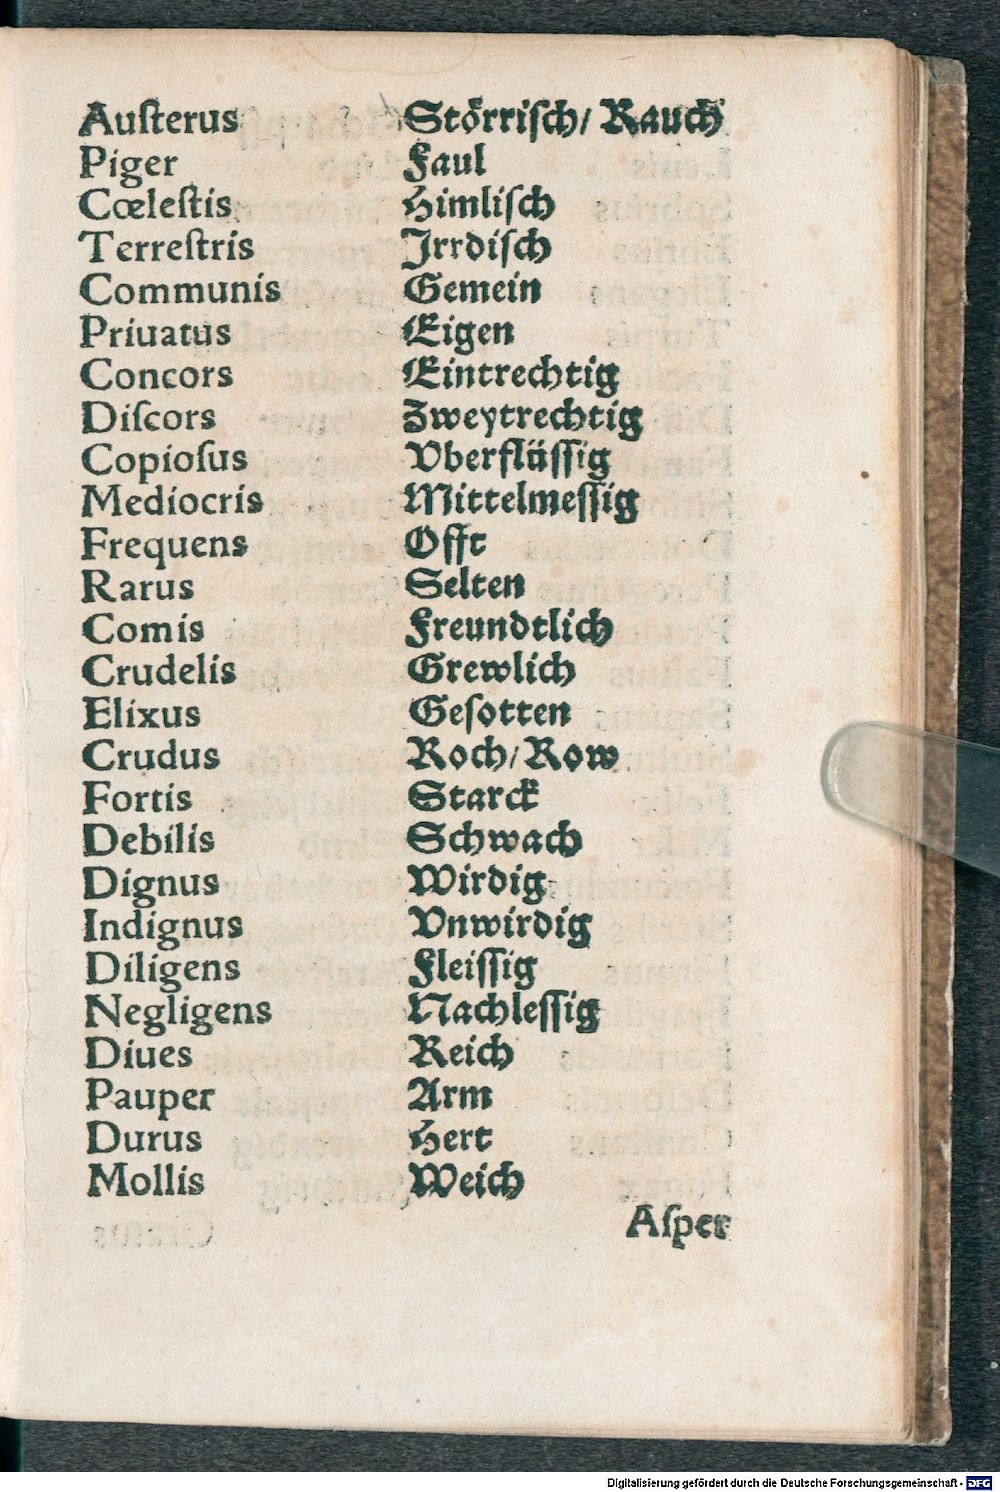 Auſterus Stoͤrriſch/ Rauch
Piger Faul
Cœleſtis Himliſch
Terreſtris Jrrdiſch
Communis Gemein
Priuatus Eigen
Concors Eintrechtig
Diſcors Zweytrechtig
Copioſus Vberfluͤſſig
Mediocris Mittelmeſſig
Frequens Offt
Rarus Selten
Comis Freundtlich
Crudelis Grewlich
Elixus Geſotten
Crudus Roch/ Row
Fortis Starck
Debilis Schwach
Dignus Wirdig
Indignus Vnwirdig
Diligens Fleiſſig
Negligens Nachleſſig
Diues Reich
Pauper Arm
Durus Hert
Mollis Weich
Aſper
Digitalisierung gefördert durch die Deutsche Forschungsgemeinschaft - DFG